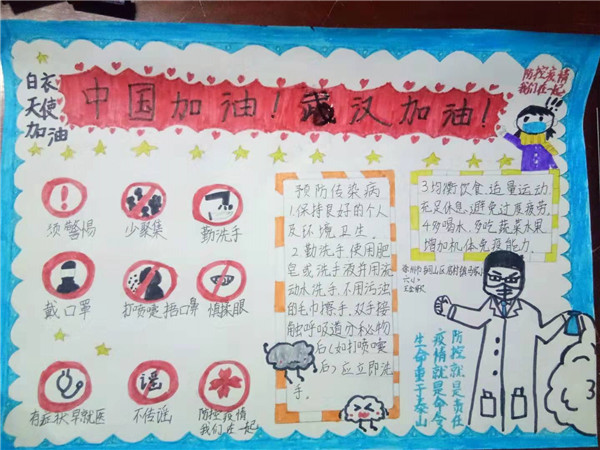 白衣
天使
加油
中国加油！武汉加油！
防控疫情
我们在一起
须警惕
少聚集
勤洗手
戴口罩
打喷嚏捂口罩
慎揉眼
谣
有症状早就医
不传谣
防控疫情
我们在一起
预防传染病
1.保持良好的个人
及环境卫生。
2.勤洗手、使用肥
皂或洗手液并用流
动水洗手，不用污浊
的毛巾擦手。双手接
触呼吸道分秘物
后（如打喷嚏
后）应立即洗
手。
3.均衡饮食、适量运动、
充足休息，避免过度疲劳。
4.多喝水，多吃蔬菜水果
增加机体免疫能力。
防控就是责任
疫情就是命令
生命重于泰山